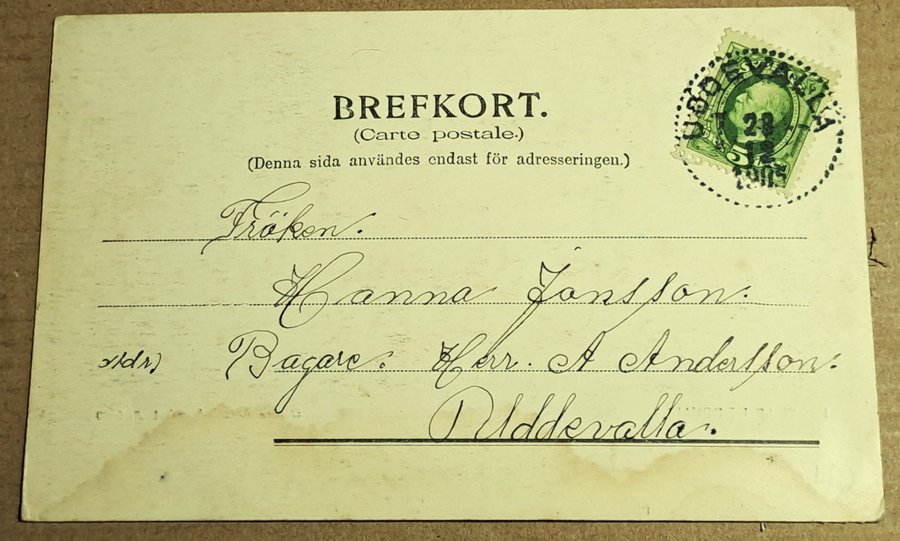 BREFKORT.
(Carte postale.)
(Denna sida användes endast för adresseringen.)
UDDEVALLA
5
12
Fröken.
Hanna Jonsson.
Bagare. Herr. A Andersson.
Uddevalla.